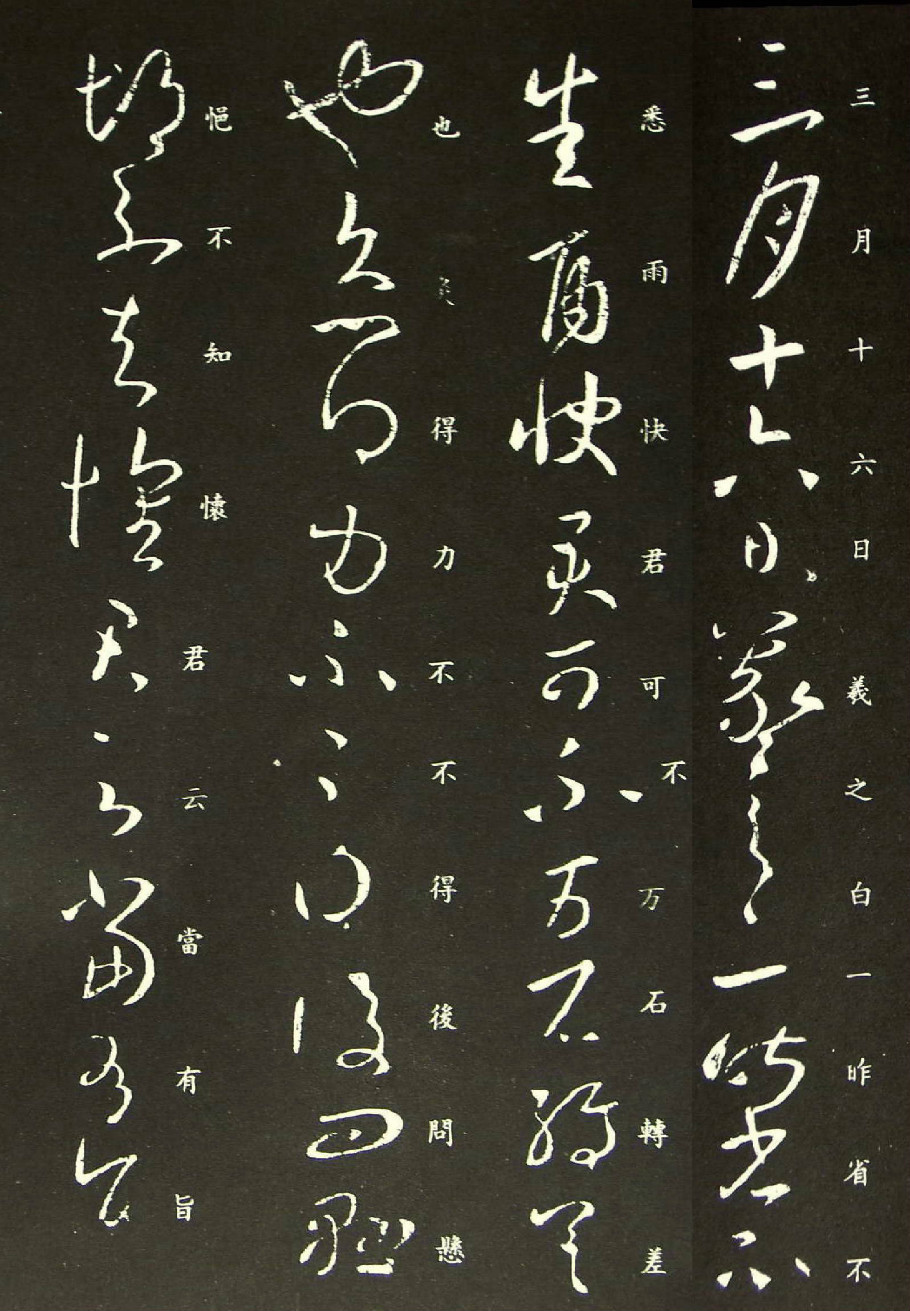 三月十六日羲之白一昨省不
悉雨快君可不万石轉差
也灸得力不不得後問懸
悒不知懷君云當有旨